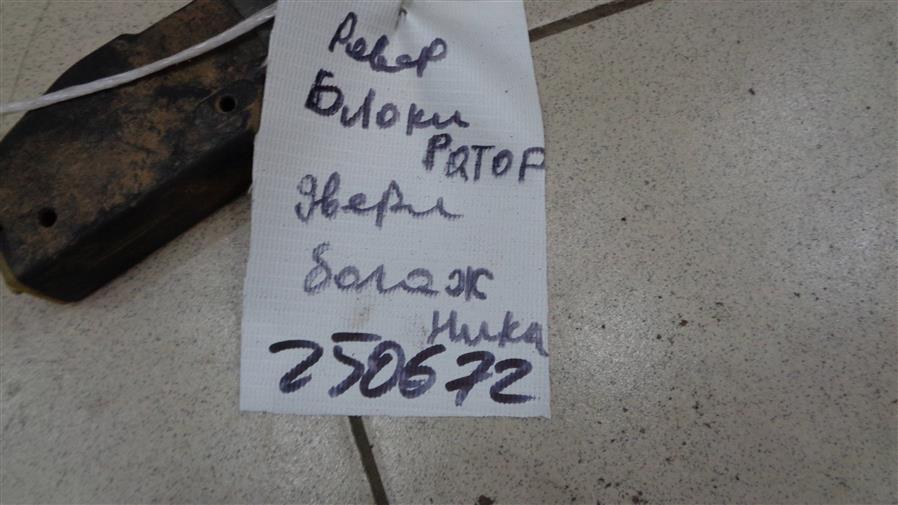 Ровер
Блоки
ратор
двери
багаж
ника
250672